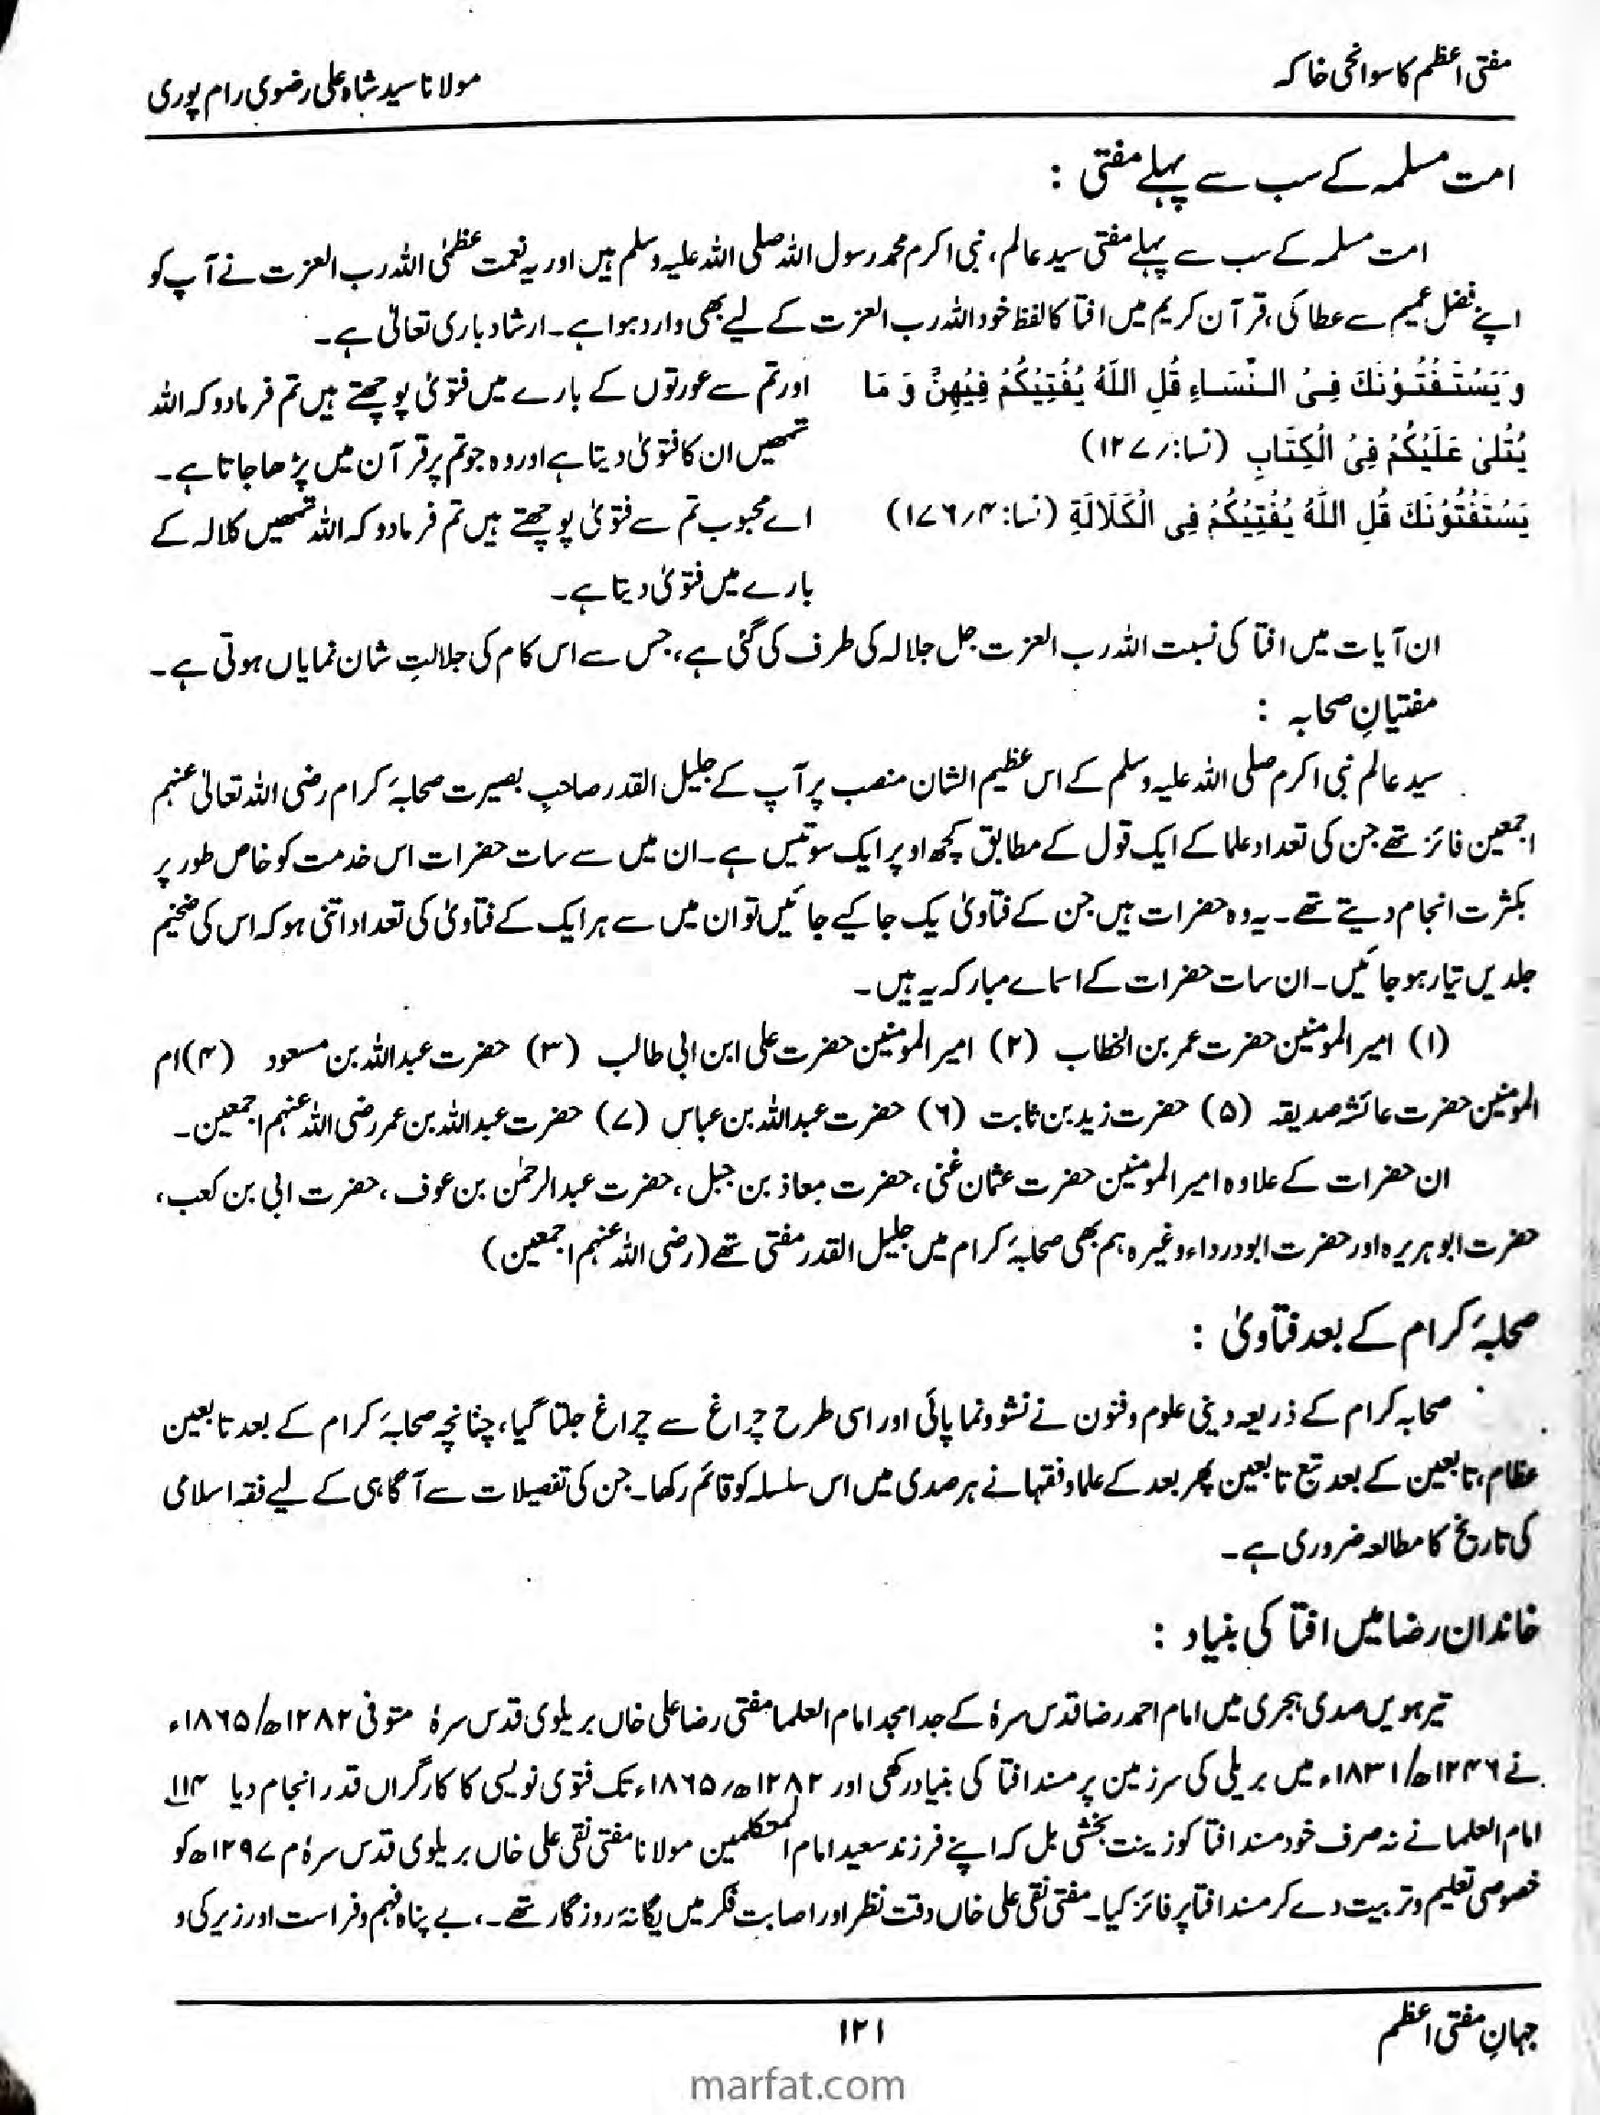 مفتی اعظم کا سوانحی خاکہ
مولانا سید شاہ علی رضوی رام پوری
امت مسلمہ کے سب سے پہلے مفتی :
امت مسلمہ کے سب سے پہلے مفتی سید عالم، نبی اکرم محمد رسول اللہ صلی اللہ علیہ وسلم ہیں اور یہ نعمت عظمٰی اللہ رب العزت نے آپ کو
اپنے فضل عمیم سے عطا کی، قرآن کریم میں افتا کا لفظ خود اللہ رب العزت کے لیے بھی وارد ہوا ہے۔ ارشاد باری تعالیٰ ہے۔
وَ یَسْتَفْتُوْنَكَ فِیْ النِّسَاءِ قُلِ اللّٰهُ یُفْتِیْكُمْ فِیْهِنَّ وَ مَا
یُتْلیٰ عَلَیْكُمْ فِیْ الْكِتَابِ (نسا:؍۱۲۷)
یَسْتَفْتُوْنَكَ قُلِ اللّٰهُ یُفْتِیْكُمْ فِی الْكَلَالَةِ (نسا:۴؍۱۷۶)
اور تم سے عورتوں کے بارے میں فتویٰ پوچھتے ہیں تم فرمادو کہ اللہ
تمھیں ان کا فتویٰ دیتا ہے اور وہ جو تم پر قرآن میں پڑھا جاتا ہے۔
اے محبوب تم سے فتویٰ پوچھتے ہیں تم فرمادو کہ اللہ تمھیں کلالہ کے
بارے میں فتویٰ دیتا ہے۔
ان آیات میں افتا کی نسبت اللہ رب العزت جل جلالہ کی طرف کی گئی ہے، جس سے اس کام کی جلالتِ شان نمایاں ہوتی ہے۔
مفتیانِ صحابہ :
سید عالم نبی اکرم صلی اللہ علیہ وسلم کے اس عظیم الشان منصب پر آپ کے جلیل القدر صاحبِ بصیرت صحابۂ کرام رضی اللہ تعالیٰ عنہم
اجمعین فائز تھے جن کی تعداد علما کے ایک قول کے مطابق کچھ اوپر ایک سو تیس ہے۔ ان میں سے سات حضرات اس خدمت کو خاص طور پر
بکثرت انجام دیتے تھے۔ یہ وہ حضرات ہیں جن کے فتاویٰ یک جا کیے جائیں تو ان میں سے ہر ایک کے فتاویٰ کی تعداد اتنی ہو کہ اس کی ضخیم
جلدیں تیار ہو جائیں۔ ان سات حضرات کے اسماے مبارکہ یہ ہیں۔
(۱) امیر المومنین حضرت عمر بن الخطاب (۲) امیر المومنین حضرت علی ابن ابی طالب (۳) حضرت عبداللہ بن مسعود (۴) ام
المومنین حضرت عائشہ صدیقہ (۵) حضرت زید بن ثابت (۶) حضرت عبداللہ بن عباس (۷) حضرت عبداللہ بن عمر رضی اللہ عنہم اجمعین۔
ان حضرات کے علاوہ امیر المومنین حضرت عثمان غنی، حضرت معاذ بن جبل، حضرت عبدالرحمٰن بن عوف، حضرت ابی بن کعب،
حضرت ابو ہریرہ اور حضرت ابودرداء وغیرہ ہم بھی صحابۂ کرام میں جلیل القدر مفتی تھے (رضی اللہ عنہم اجمعین)
صحابۂ کرام کے بعد فتاویٰ :
صحابہ کرام کے ذریعہ دینی علوم و فنون نے نشوونما پائی اور اسی طرح چراغ سے چراغ جلتا گیا، چنانچہ صحابۂ کرام کے بعد تابعین
عظام، تابعین کے بعد تبع تابعین پھر بعد کے علما و فقہا نے ہر صدی میں اس سلسلہ کو قائم رکھا۔ جن کی تفصیلات سے آگاہی کے لیے فقہ اسلامی
کی تاریخ کا مطالعہ ضروری ہے۔
خاندان رضا میں افتا کی بنیاد :
تیرہویں صدی ہجری میں امام احمد رضا قدس سرہٗ کے جد امجد امام العلما مفتی رضا علی خاں بریلوی قدس سرہٗ متوفی ۱۲۸۲ھ/۱۸۶۵ء
نے ۱۲۴۶ھ/۱۸۳۱ء میں بریلی کی سرزمین پر مسند افتا کی بنیاد رکھی اور ۱۲۸۲ھ؍۱۸۶۵ء تک فتویٰ نویسی کا کار گراں قدر انجام دیا ۱۱۴
امام العلما نے نہ صرف خود مسند افتا کو زینت بخشی بل کہ اپنے فرزند سعید امام المتکلمین مولانا مفتی نقی علی خاں بریلوی قدس سرہٗ م ۱۲۹۷ھ کو
خصوصی تعلیم و تربیت دے کر مسند افتا پر فائز کیا۔ مفتی نقی علی خاں دقت نظر اور اصابت فکر میں یگانۂ روزگار تھے۔، بے پناہ فہم و فراست اور زیرکی و
جہانِ مفتی اعظم
۱۲۱
marfat.com